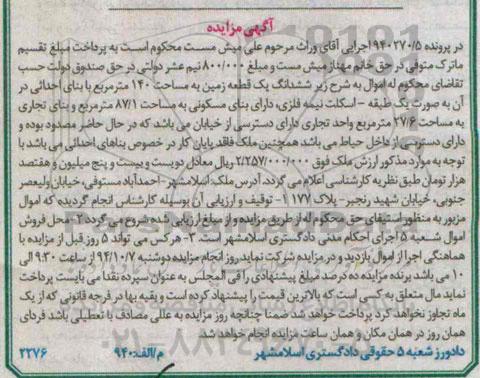 آگهی مزایده
در پرونده ۹۴۰۲۷۰/۵ اجرایی آقای وراث مرحوم علی میش مست محکوم است به پرداخت مبلغ تقسیم
ماترک متوفی در حق خانم مهناز میش مست و مبلغ ۸۰۰/۰۰۰ نیم عشر دولتی در حق صندوق دولت حسب
تقاضای محکوم له اموال به شرح زیر ششدانگ یک قطعه زمین به مساحت ۱۴۰ مترمربع با بنای احداثی در
آن به صورت یک طبقه - اسکلت نیمه فلزی، دارای بنای مسکونی به مساحت ۸۷/۱ مترمربع و بنای تجاری
به مساحت ۲۷/۶ مترمربع واحد تجاری دارای دسترسی از خیابان می باشد که در حال حاضر مصدود بوده و
دارای دسترسی از داخل حیاط می باشد همچنین ملک فاقد پایان کار در خصوص بناهای احداثی می باشد با
توجه به موارد مذکور ارزش ملک فوق ۲/۲۵۷/۰۰۰/۰۰۰ ریال معادل دویست و بیست و پنج میلیون و هفتصد
هزار تومان طبق نظریه کارشناسی اعلام می گردد. آدرس ملک: اسلامشهر-احمدآباد مستوفی، خیابان ولیعصر
جنوبی، خیابان شهید رنجبر- پلاک ۱۱۷۷-۱ توقیف و ارزیابی آن بوسیله کارشناس انجام گردیده که اموال
مزبور به منظور استیفای حق محکوم له از طریق مزایده و از مبلغ ارزیابی شده شروع می گردد ۲- محل فروش
اموال شعبه ۵ اجرای احکام مدنی دادگستری اسلامشهر است. ۳- هر کس می تواند ۵ روز قبل از مزایده با
هماهنگی اجرا از اموال بازدید و در مزایده شرکت نماید روز انجام مزایده دوشنبه ۹۴/۱۰/۷ از ساعت ۹:۳۰ الی
۱۰ می باشد برنده مزایده ده درصد مبلغ پیشنهادی را فی المجلس به عنوان سپرده نقدا می بایست پرداخت
نماید مال متعلق به کسی است که بالاترین قیمت را پیشنهاد کرده است و بقیه بها در فرجه قانونی که از یک
ماه تجاوز نخواهد کرد پرداخت خواهد شد ضمنا چنانچه روز مزایده به عللی مصادف با تعطیلی باشد فردای
همان روز در همان مکان و همان ساعت مزایده انجام خواهد شد
دادورز شعبه ۵ حقوقی دادگستری اسلامشهر م/الف:۹۴۰ ۲۲۷۶